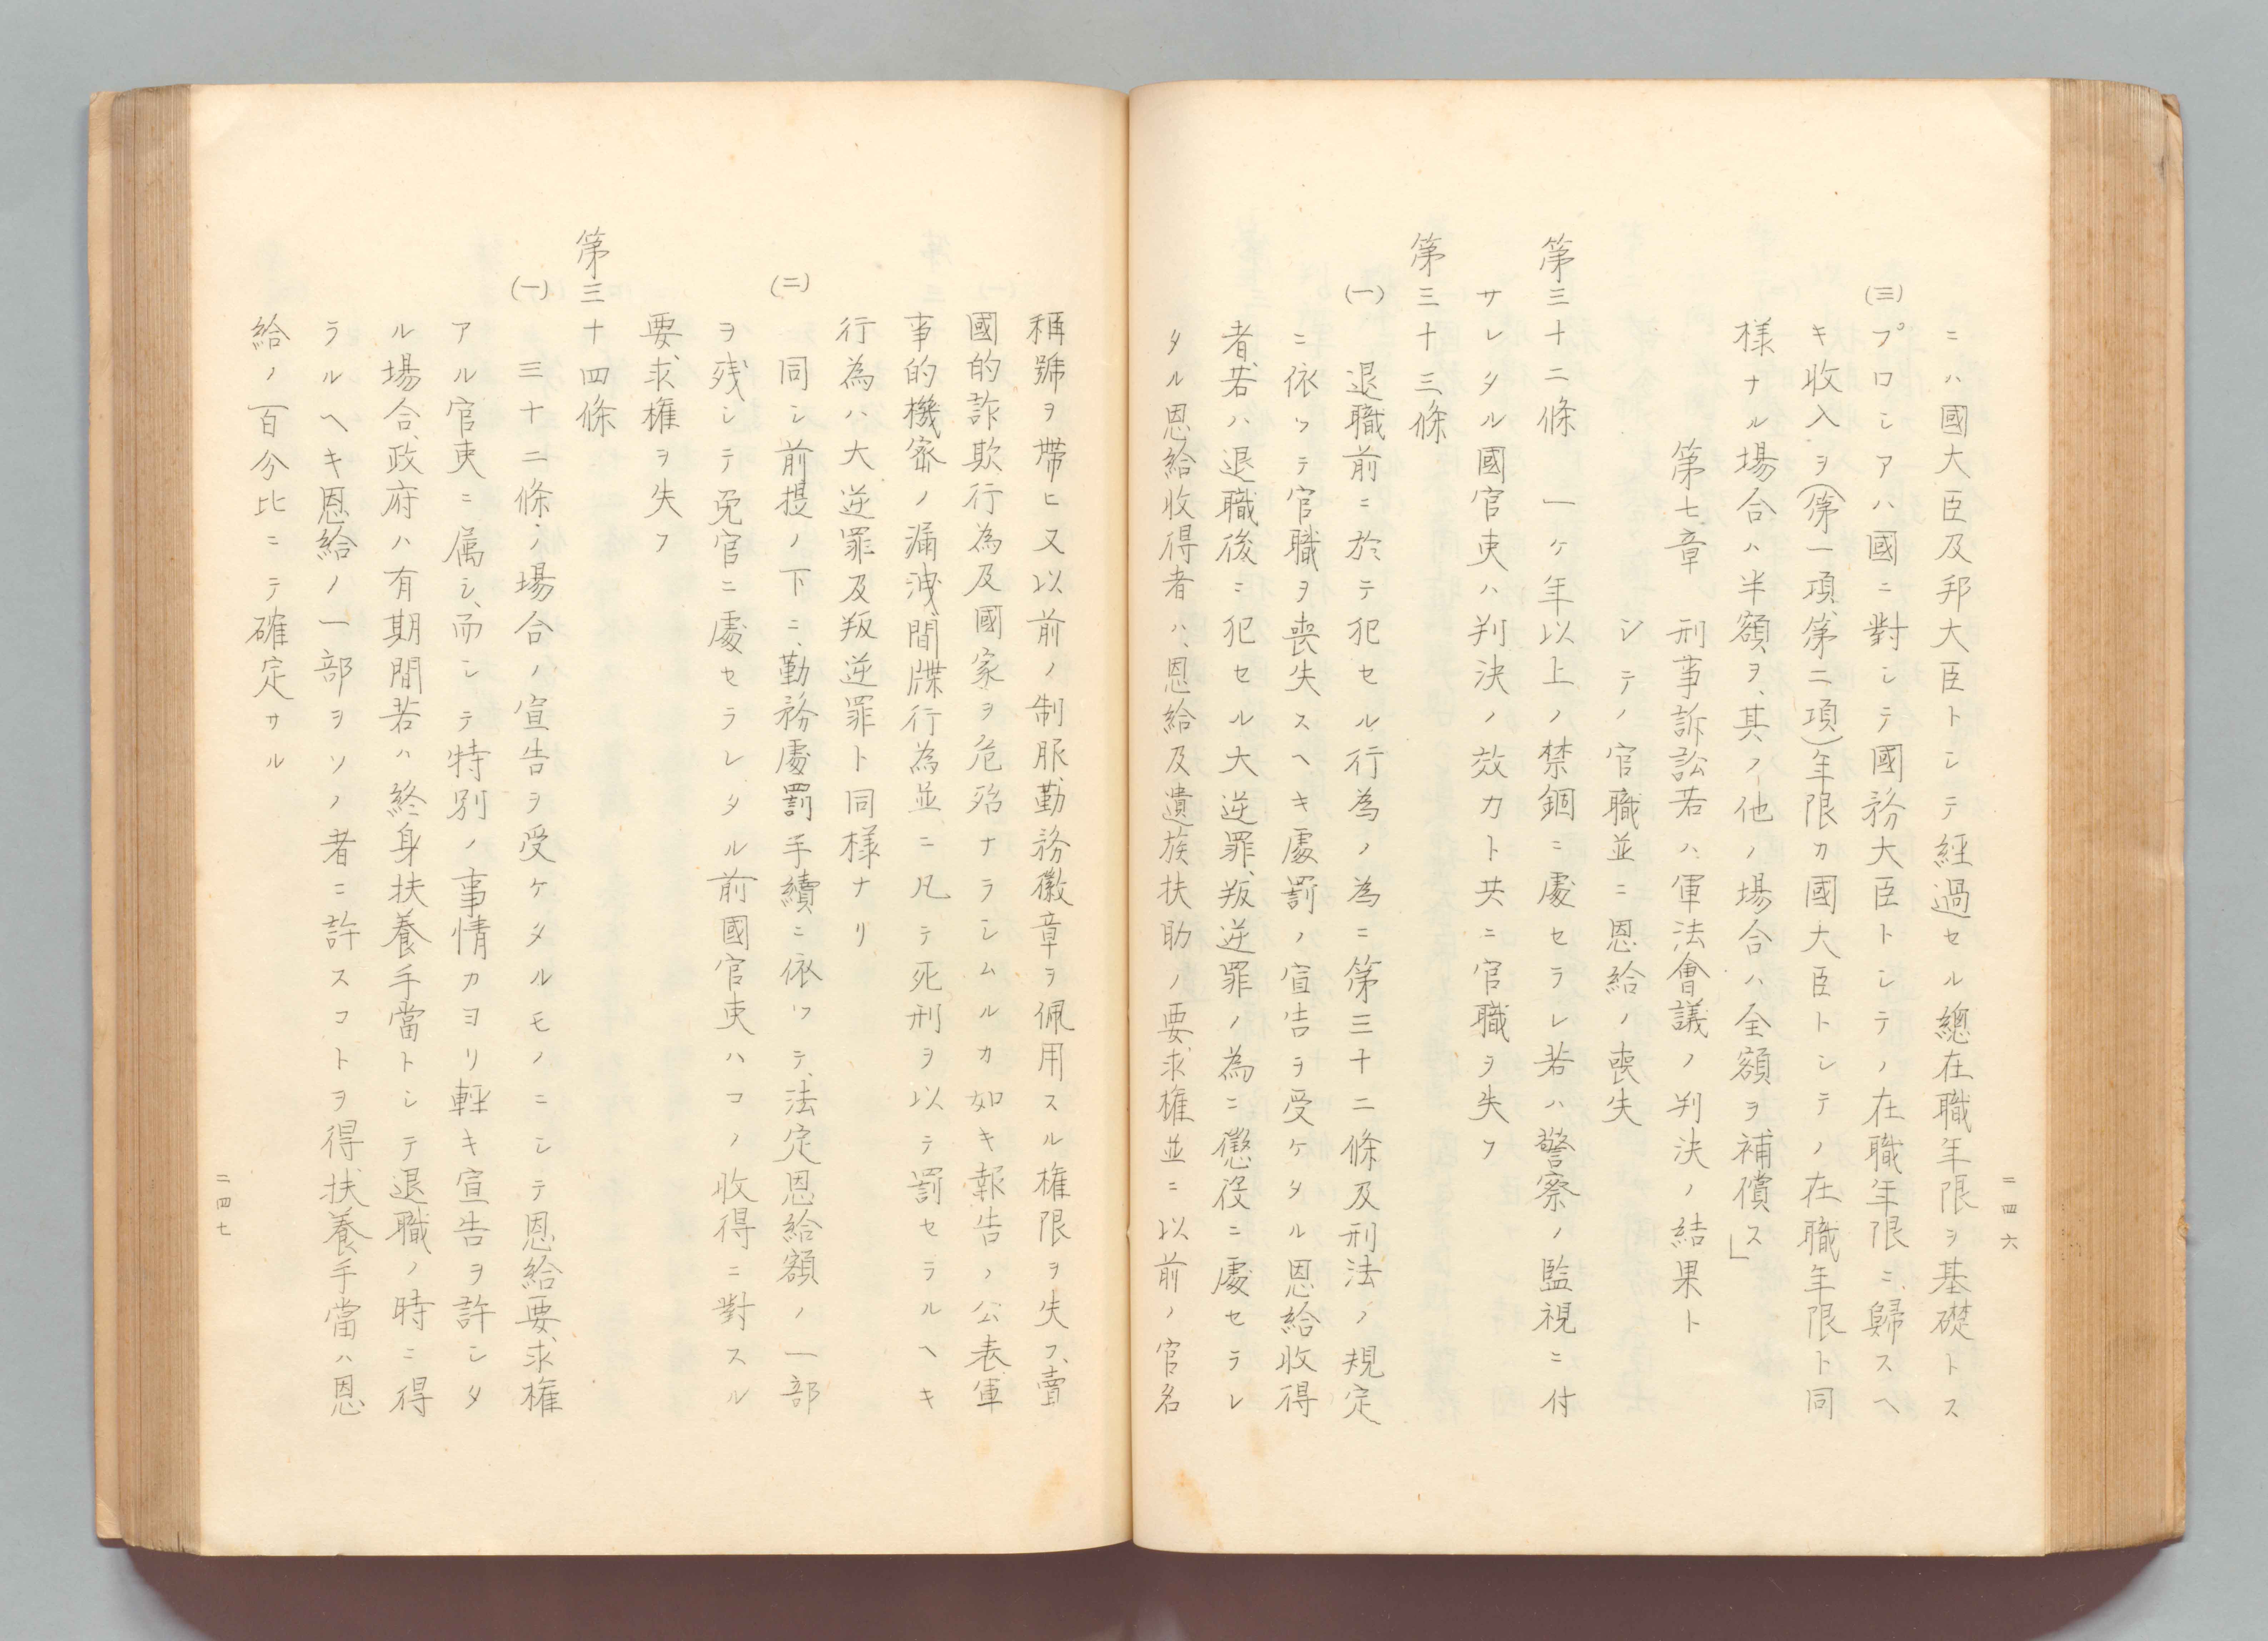 二四六
ニハ國大臣及邦大臣トシテ經過セル總在職年限ヲ基礎トス
(三)プロシアハ國ニ對シテ國務大臣トシテノ在職年限ニ、歸スヘ
キ收入ヲ(第一項、第二項)年限カ國大臣トシテノ在職年限ト同
様ナル場合ハ半額ヲ、其ノ他ノ場合ハ全額ヲ補償ス」
第七章 刑事訴訟若ハ軍法會議ノ判決ノ結果ト
シテノ官職並ニ恩給ノ喪失
第三十二條 一ケ年以上ノ禁錮ニ處セラレ若ハ警察ノ監視ニ付
サレタル國官吏ハ判決ノ效力ト共ニ官職ヲ失フ
第三十三條
(一) 退職前ニ於テ犯セル行為ノ為ニ第三十二條及刑法ノ規定
ニ依ツテ官職ヲ喪失スヘキ處罰ノ宣告ヲ受ケタル恩給收得
者、若ハ退職後ニ犯セル大逆罪、叛逆罪ノ為ニ懲役ニ處セラレ
タル恩給收得者ハ、恩給及遺族扶助ノ要求權並ニ以前ノ官名
稱號ヲ帶ヒ又以前ノ制服、勤務徽章ヲ佩用スル權限ヲ失フ、賣
國的詐欺行為及國家ヲ危殆ナラシムルカ如キ報告ノ公表、軍
事的機密ノ漏洩、間牒行為並ニ凡テ死刑ヲ以テ罰セラルヘキ
行為ハ大逆罪及叛逆罪ト同様ナリ
(二) 同シ前提ノ下ニ、勤務處罰手續ニ依ツテ、法定恩給額ノ一部
ヲ残シテ免官ニ處セラレタル前國官吏ハコノ收得ニ對スル
要求權ヲ失フ
第三十四條
(一) 三十二條ノ場合ノ宣告ヲ受ケタルモノニシテ恩給要求權
アル官吏ニ属シ、而シテ特別ノ事情カヨリ輕キ宣告ヲ許シタ
ル場合、政府ハ有期間若ハ終身扶養手當トシテ退職ノ時ニ得
ラルヘキ恩給ノ一部ヲソノ者ニ許スコトヲ得扶養手當ハ恩
給ノ百分比ニテ確定サル
二四七